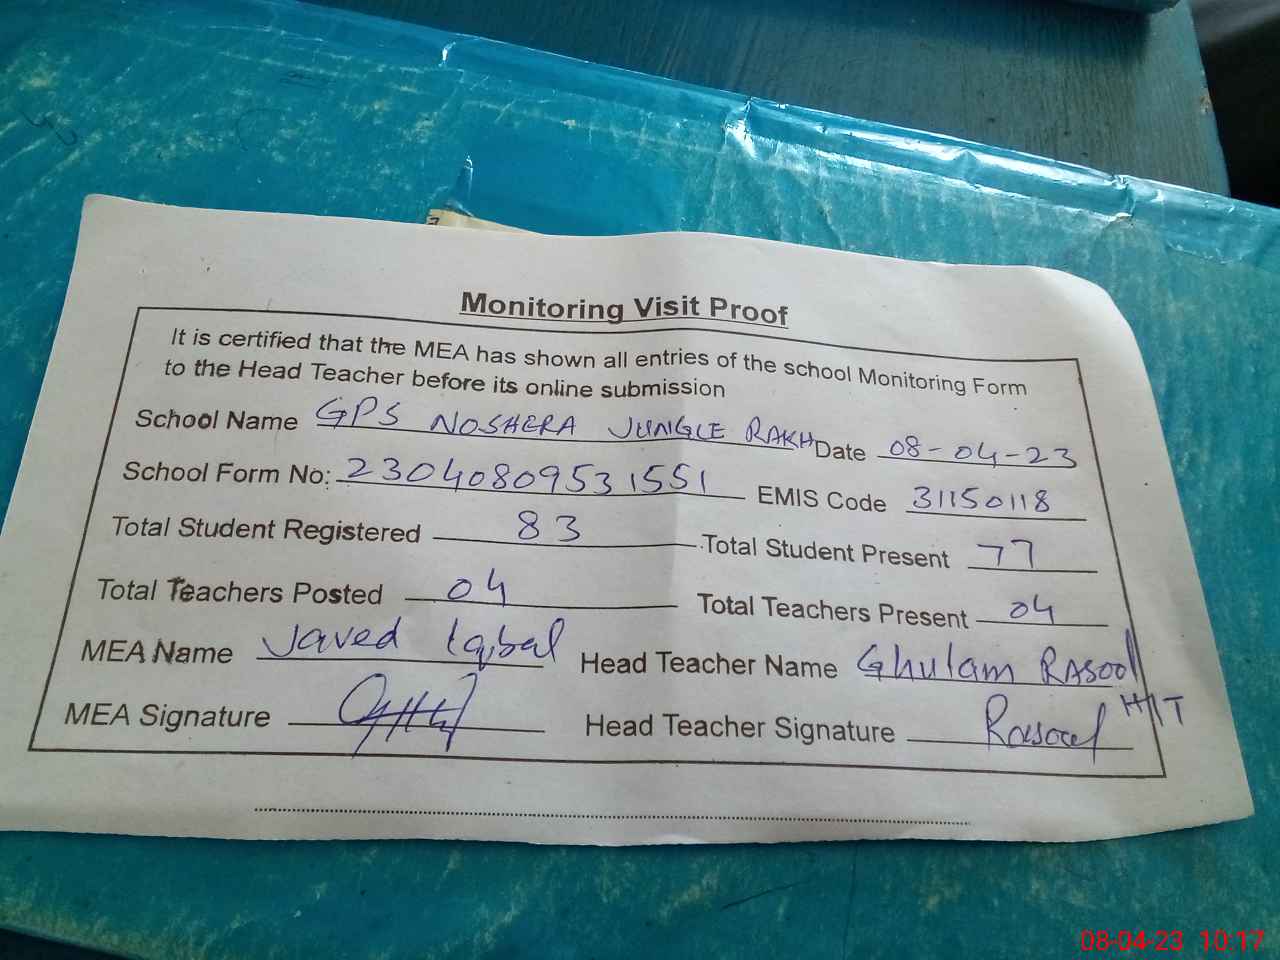 Monitoring Visit Proof
It is certified that the MEA has shown all entries of the school Monitoring Form
to the Head Teacher before its online submission
School Name GPS NOSHERA JUNGLE RAKH Date 08-04-23
School Form No: 23040809531551 EMIS Code 31150118
Total Student Registered 83 Total Student Present 77
Total Teachers Posted 04 Total Teachers Present 04
MEA Name Javed Iqbal Head Teacher Name Ghulam RASOOl
MEA Signature Head Teacher Signature Rasool H/T
08-04-23 10:17